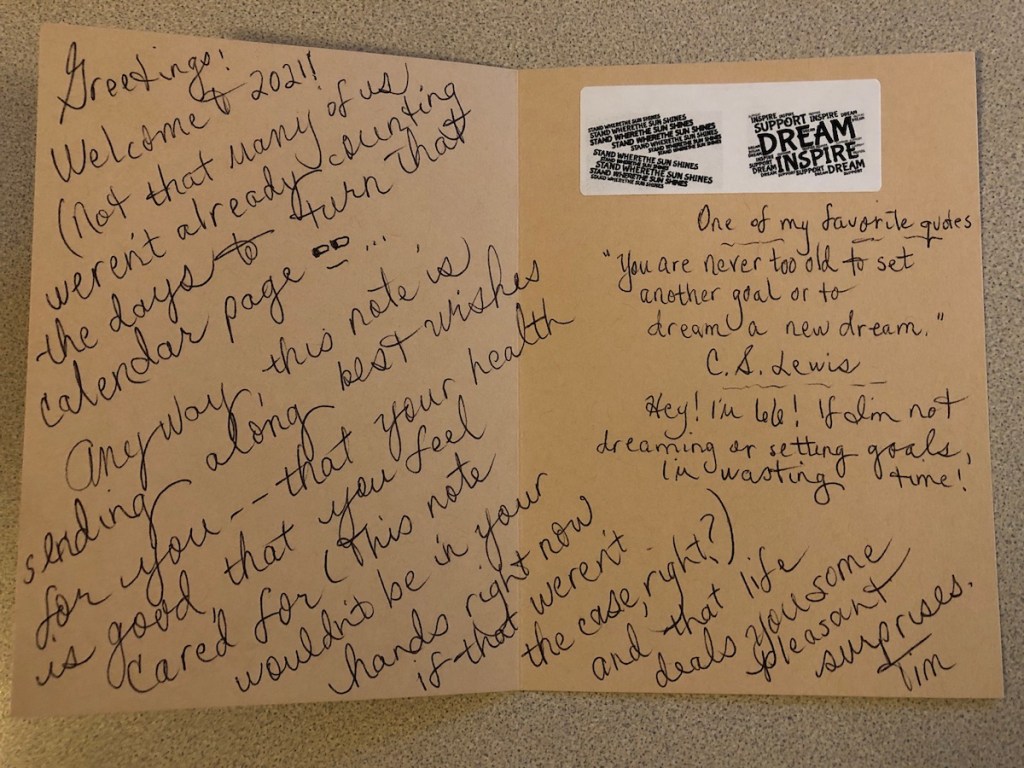 Greetings!
Welcome to 2021!
(Not that many of us
weren't already counting
the days to turn that
calendar page ...
Anyway, this note is
sending along best wishes
for you -- that your health
is good, that you feel
"cared" for (this note
wouldn't be in your
hands right now
if that weren't
the case, right?)
and that life
deals you some
pleasant
surprises.
Tim
STAND WHERETHE SUN SHINES
STAND WHERETHE SUN SHINES
STAND WHERETHE SUN SHINES
STAND WHERETHE SUN SHINES
STAND WHERETHE SUN SHINES
STAND WHERETHE SUN SHINES
STAND WHERETHE SUN SHINES
STAND WHERETHE SUN SHINES
INSPIRE INSPIRE DREAM
SUPPORT
DREAM
INSPIRE
DREAM SUPPORT DREAM
One of my favorite quotes
"You are never too old to set
another goal or to
dream a new dream."
C.S. Lewis
Hey! I'm 66! If I'm not
dreaming or setting goals,
I'm wasting time!